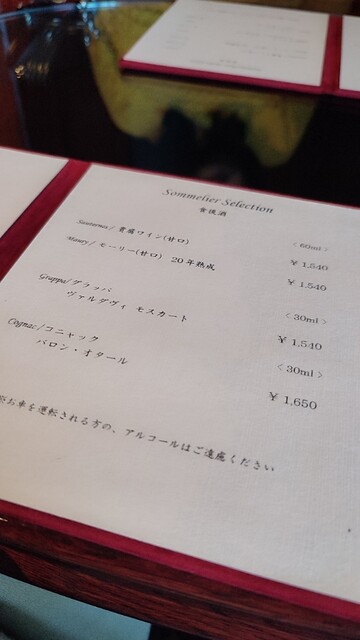 Sommelier Selection
食後酒
<60ml>
Sauternes/ 貴腐ワイン(甘口) ¥ 1,540
Maury/ モーリー(甘口) 20年熟成 ¥ 1,540
<30ml>
Grappa/グラッパ
ヴァルヴィ モスカート ¥ 1,540
<30ml>
Cognac/コニャック
バロン・オタール ¥ 1,650
お車を運転される方の、アルコールはご遠慮ください